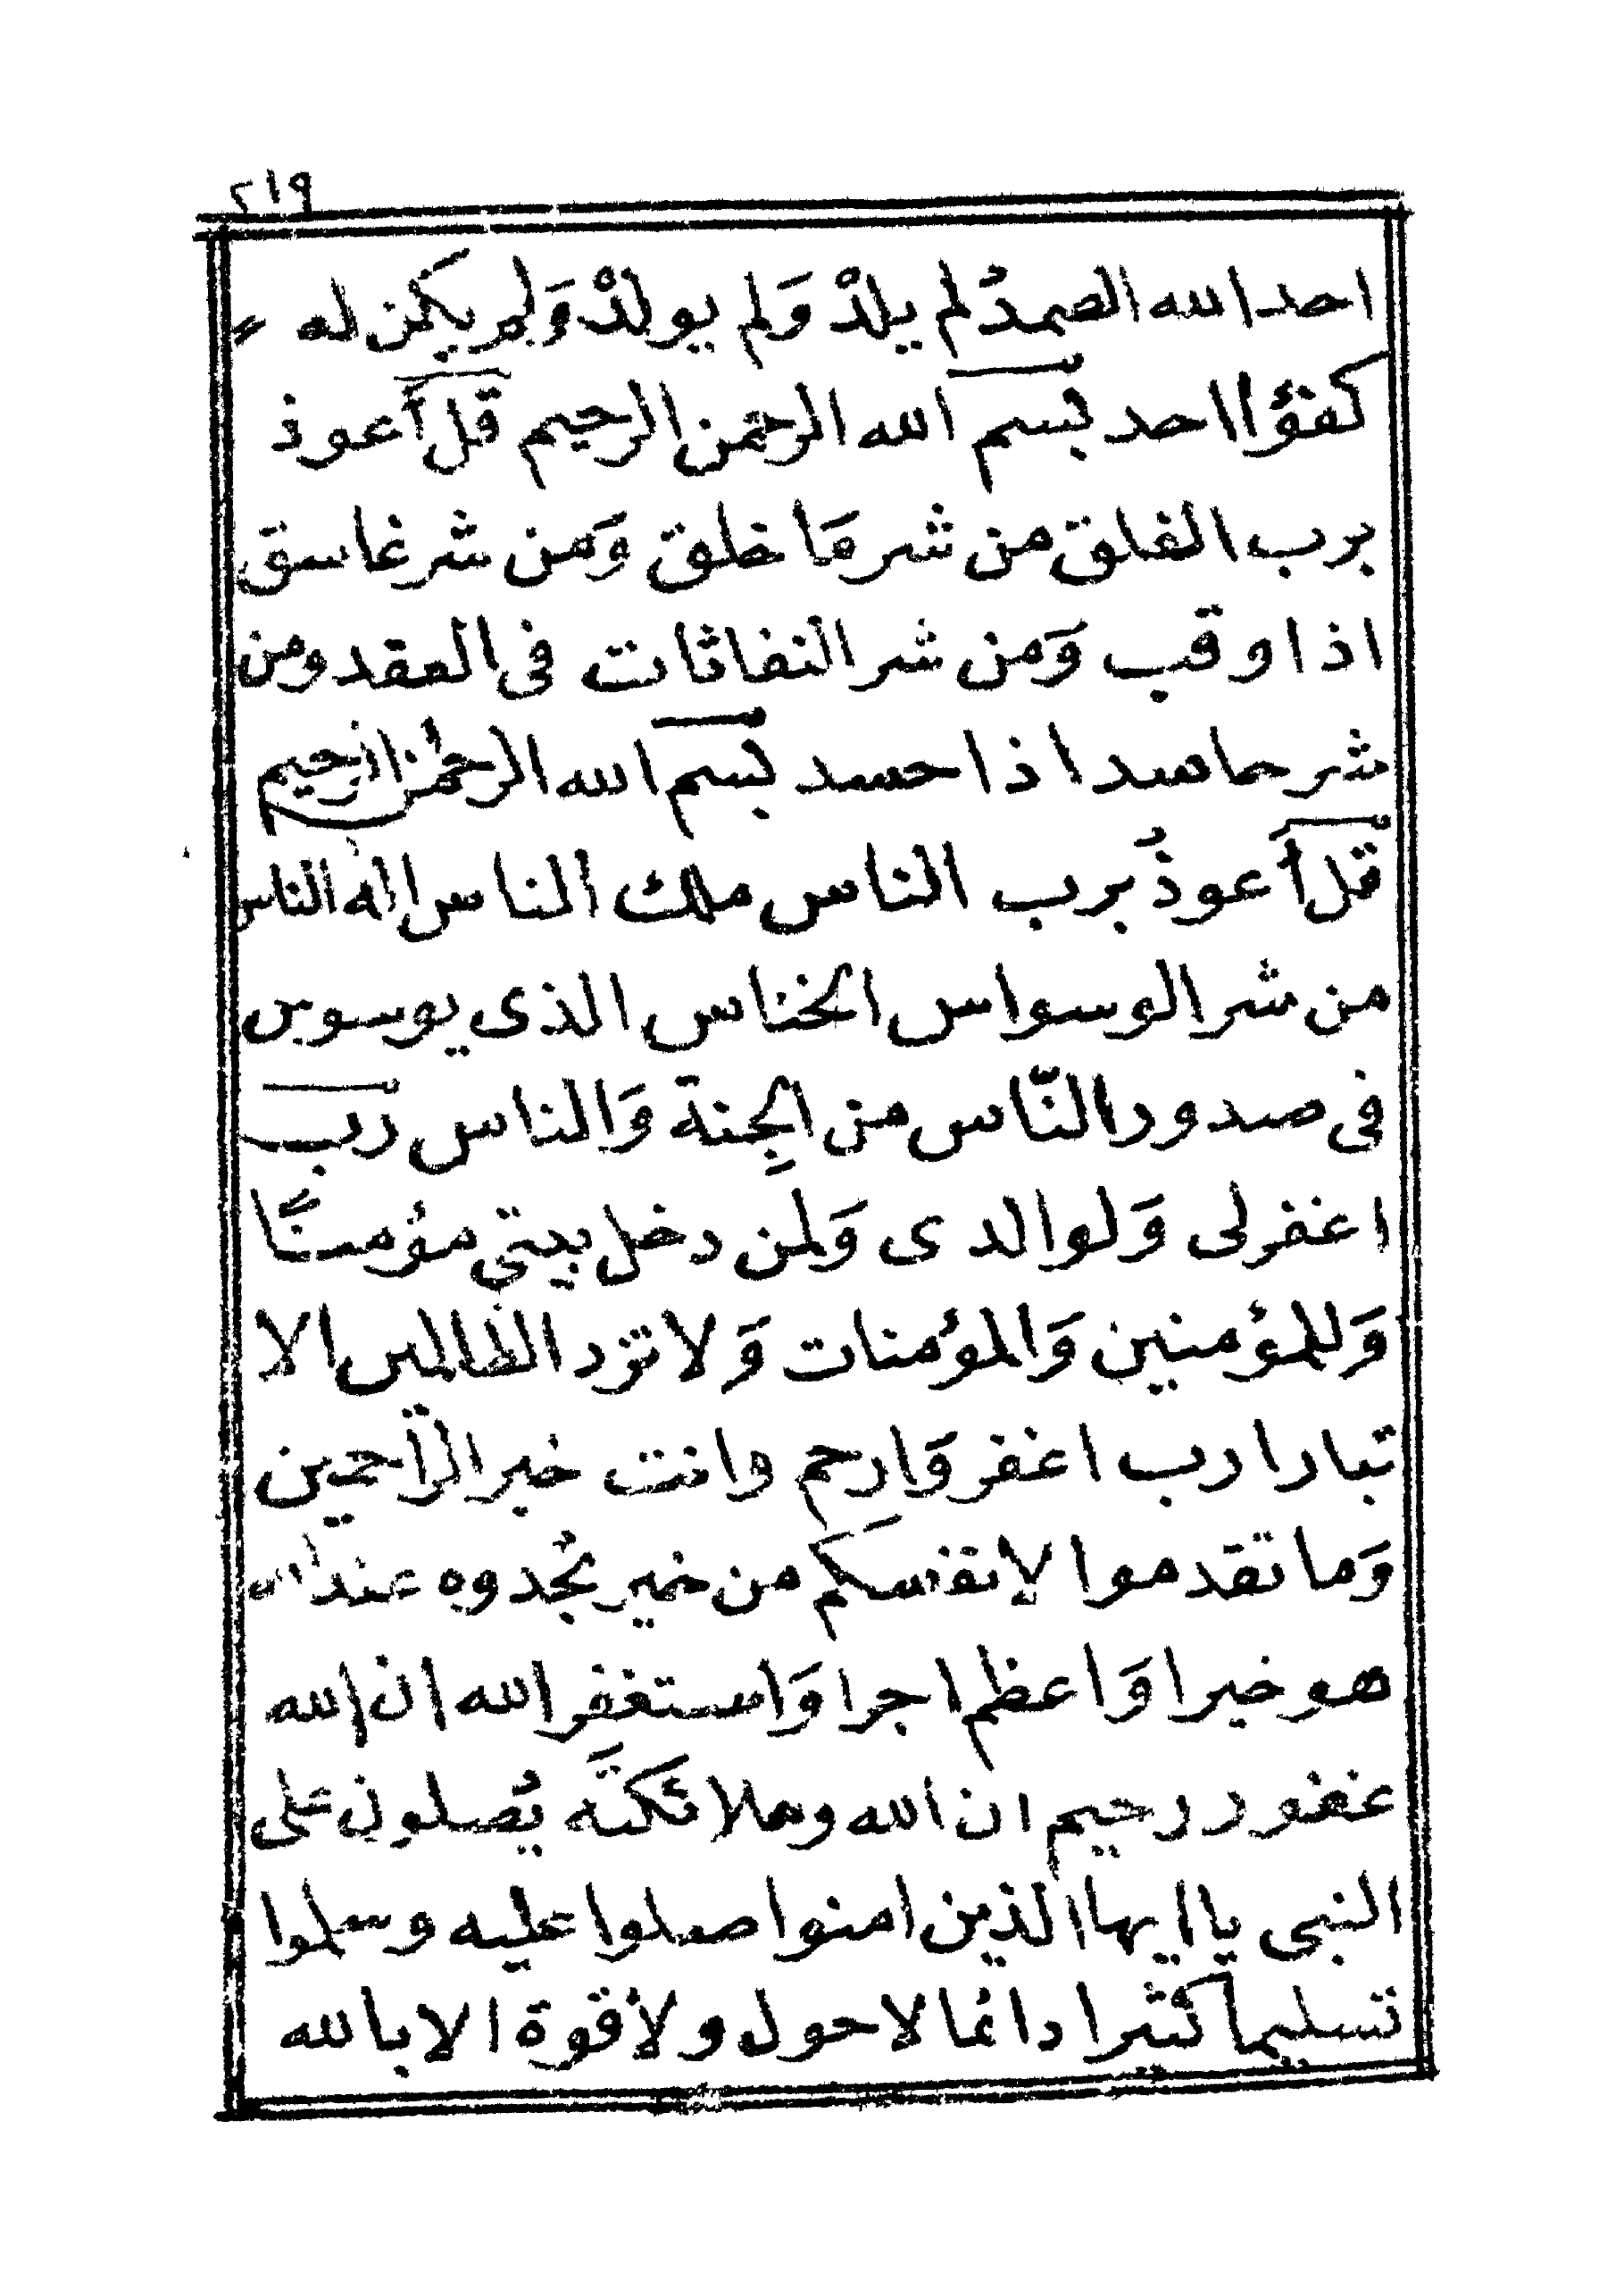 ٢١٩
احد الله الصمدُ لم يلدْ وَلم يولدْ وَلم يكن له
كفؤا احد بسم الله الرحمن الرحيم قل أعوذ
برب الفلق من شر مَا خلق وَمن شر غاسق
اذا وقب وَمن شر النفاثات في العقد ومن
شر حاسد اذا حسد بسم الله الرحمن الرحيم
قل أعوذُ برب الناس ملك الناس اله الناس
من شر الوسواس الخناس الذى يوسوس
في صدور النّاس من الجِنة وَالناس رب
اغفر لى وَلوالدى وَلمن دخل بيتي مؤمنًا
وَللمؤمنين وَالمؤمنات وَلا تزد الظالمين الا
تبارا رب اغفر وَارحم وانت خير الرّاحمين
وَما تقدموا لانفسكم من خير تجدوه عند الله
هو خيرا وَاعظم اجرا وَاستغفر الله ان الله
غفور رحيم ان الله وملائكتَه يُصلون على
النبى يا ايها الذين امنوا صلوا عليه وسلموا
تسليما كثيرا دائما لا حول ولا قوة الا بالله